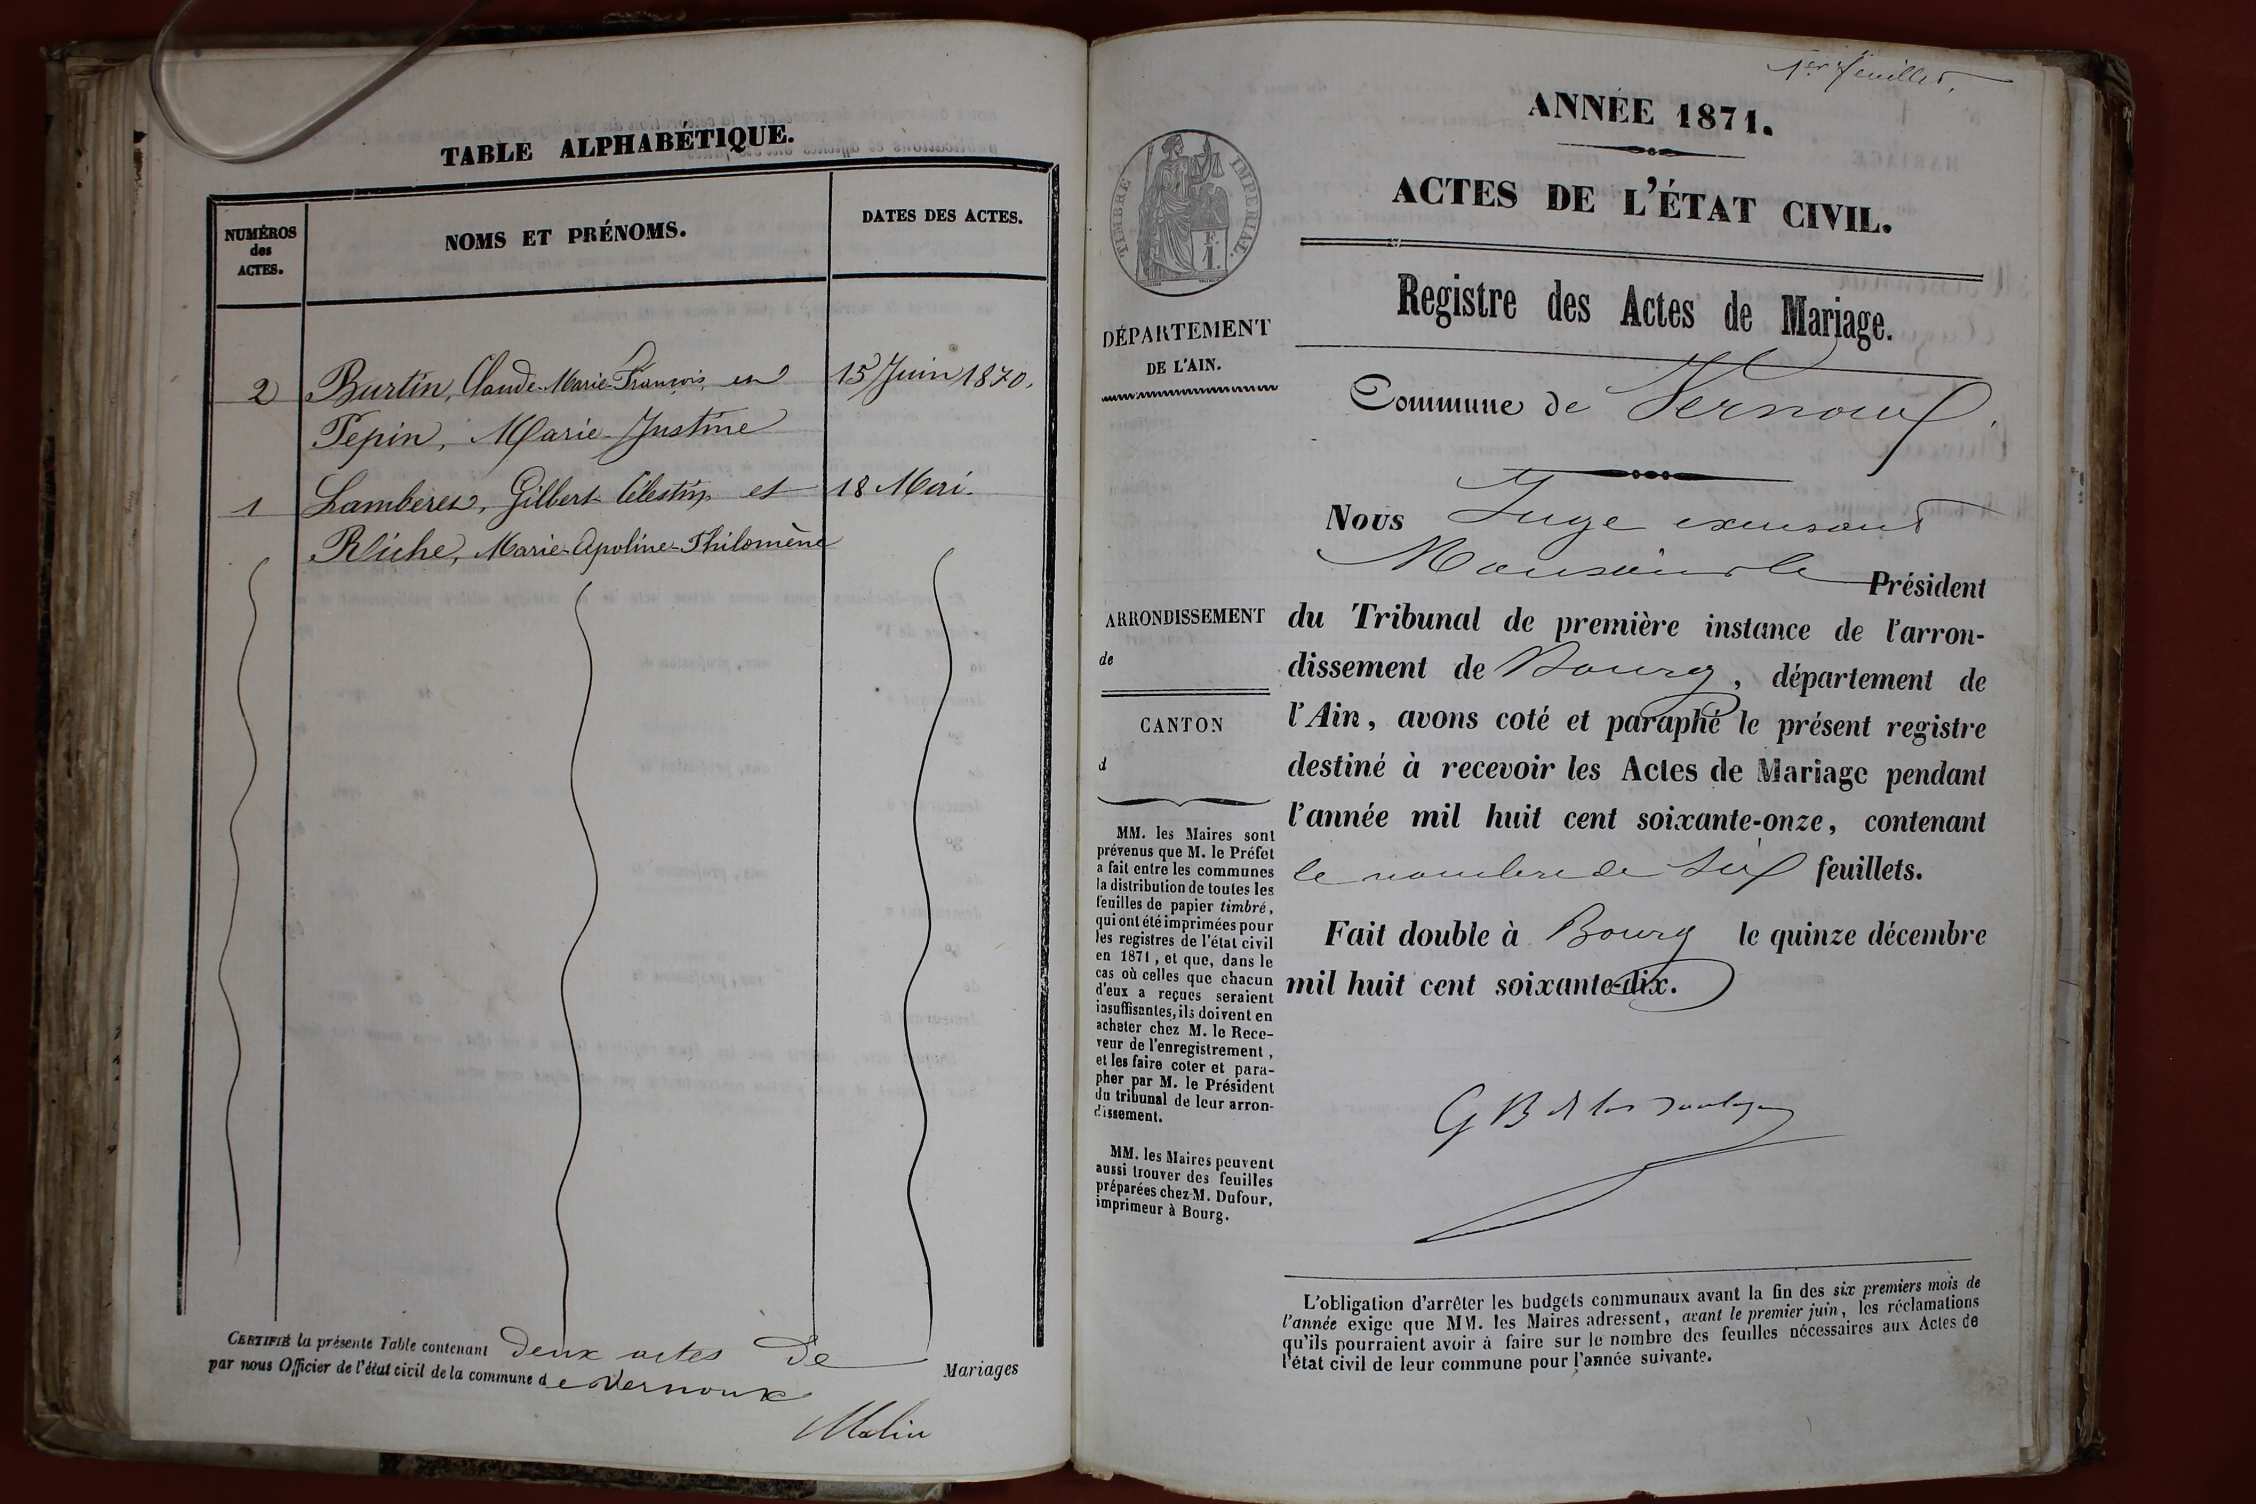 TABLE ALPHABÉTIQUE.
NUMÉROS
des
ACTES.
NOMS ET PRÉNOMS.
DATES DES ACTES.
2 Burtin, Claude-Marie-François, et 15 Juin 1870.
Pepin, Marie-Justine
1 Lamberet, Gilbert Célestin et 18 Mai.
Riche, Marie-Apoline-Philomène
CERTIFIÉ la présente Table contenant deux actes de Mariages
par nous Officier de l'état civil de la commune de Vernoux
1er feuillet.
ANNÉE 1871.
ACTES DE L'ÉTAT CIVIL.
TIMBRE IMPÉRIAL.
F.
1.
DÉPARTEMENT
DE L'AIN.
Registre des Actes de Mariage.
Commune de Vernoux.
Nous Juge
Président
ARRONDISSEMENT
de
CANTON
d
du Tribunal de première instance de l'arron-
dissement de Bourg, département de
l'Ain, avons coté et paraphé le présent registre
destiné à recevoir les Actes de Mariage pendant
l'année mil huit cent soixante-onze, contenant
le nombre de six feuillets.
Fait double à Bourg le quinze décembre
mil huit cent soixante-dix.
MM. les Maires sont
prévenus que M. le Préfet
a fait entre les communes
la distribution de toutes les
feuilles de papier timbré,
qui ont été imprimées pour
les registres de l'état civil
en 1871, et que, dans le
cas où celles que chacun
d'eux a reçues seraient
insuffisantes, ils doivent en
acheter chez M. le Rece-
veur de l'enregistrement,
et les faire coter et para-
pher par M. le Président
du tribunal de leur arron-
dissement.
MM. les Maires peuvent
aussi trouver des feuilles
préparées chez M. Dufour,
imprimeur à Bourg.
L'obligation d'arrêter les budgets communaux avant la fin des six premiers mois de
l'année exige que MM. les Maires adressent, avant le premier juin, les réclamations
qu'ils pourraient avoir à faire sur le nombre des feuilles nécessaires aux Actes de
l'état civil de leur commune pour l'année suivante.